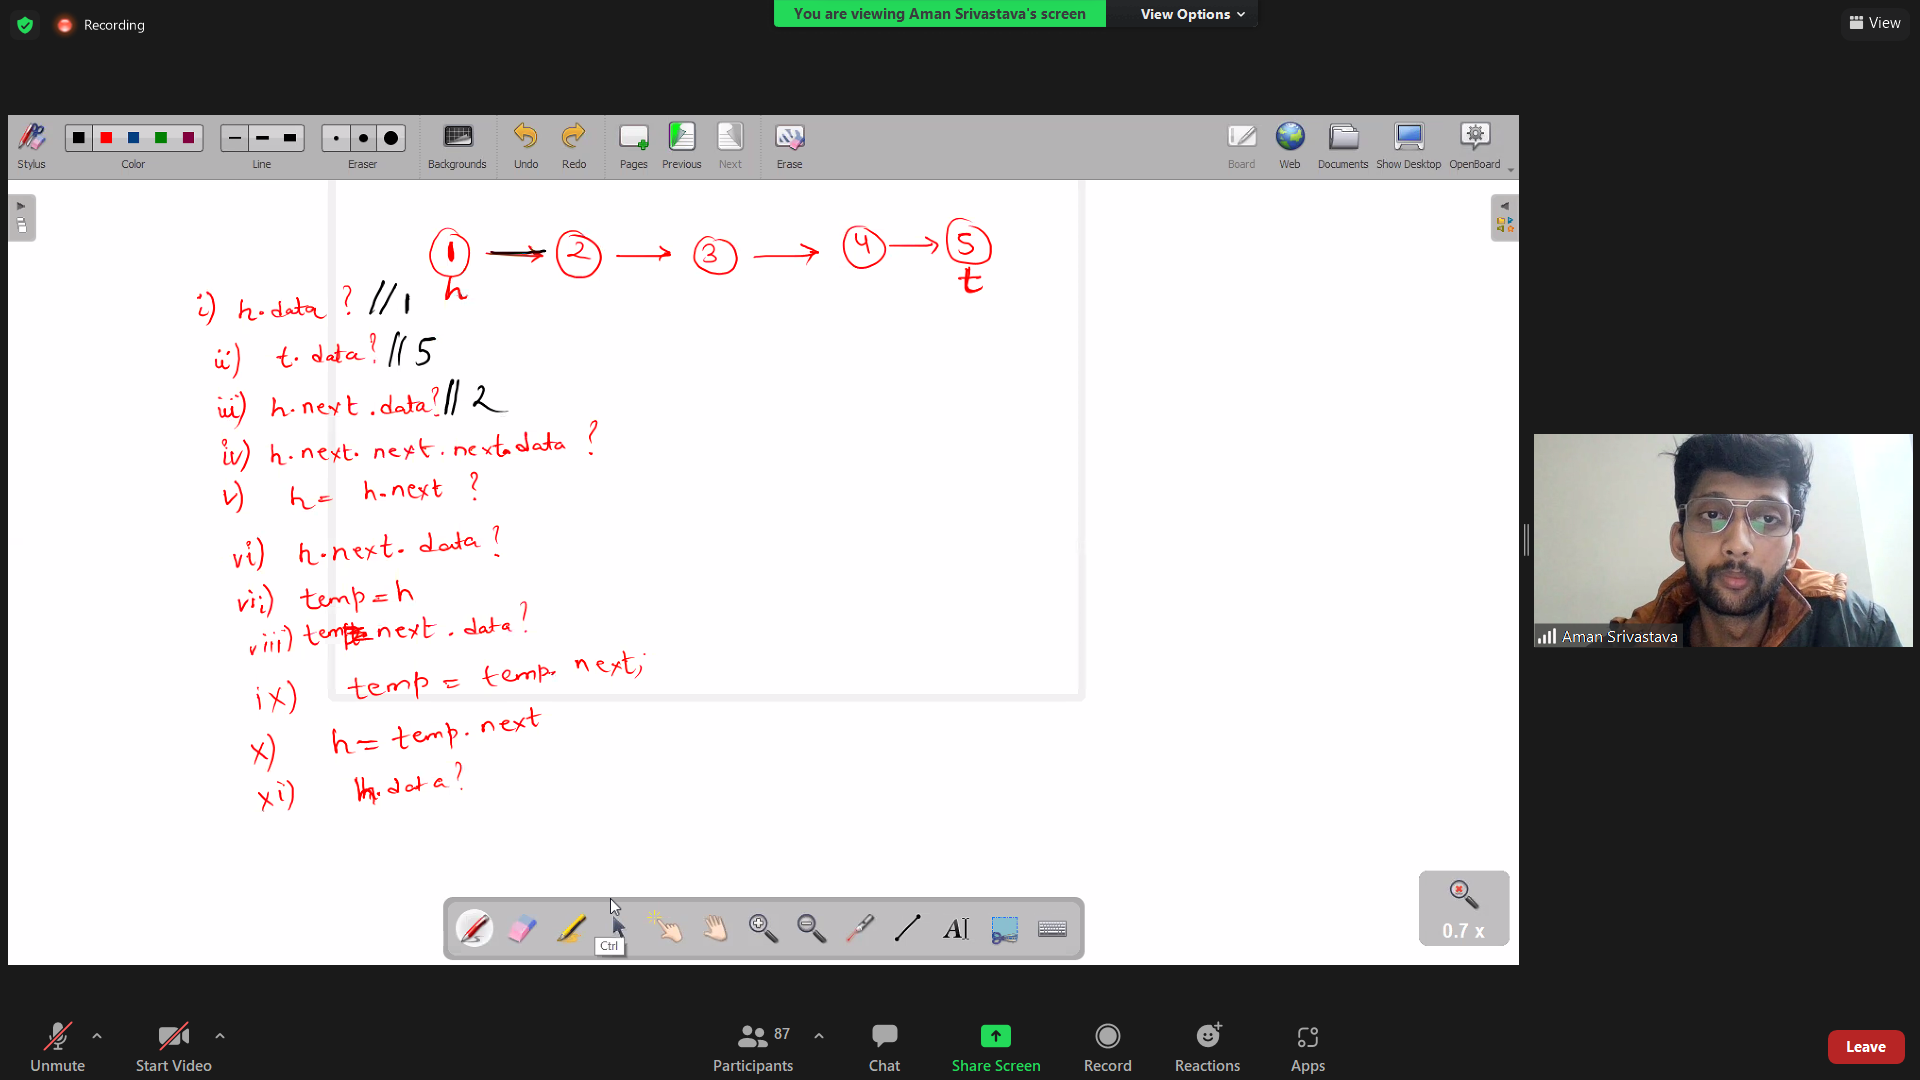 Recording
You are viewing Aman Srivastava's screen
View Options
View
Stylus
Color
Line
Eraser
Backgrounds
Undo
Redo
Pages
Previous
Next
Erase
Board
Web
Documents
Show Desktop
OpenBoard
1 → 2 → 3 → 4 → 5
h t
i) h.data ? // 1
ii) t. data? // 5
iii) h.next .data? // 2
iv) h.next. next. next.data ?
v) h = h.next ?
vi) h.next. data?
vii) temp = h
viii) next . data?
ix) temp = temp. next;
x) h = temp. next
xi) h.data?
Aman Srivastava
AI
Ctrl
0.7 x
Unmute
Start Video
87
Participants
Chat
Share Screen
Record
Reactions
Apps
Leave